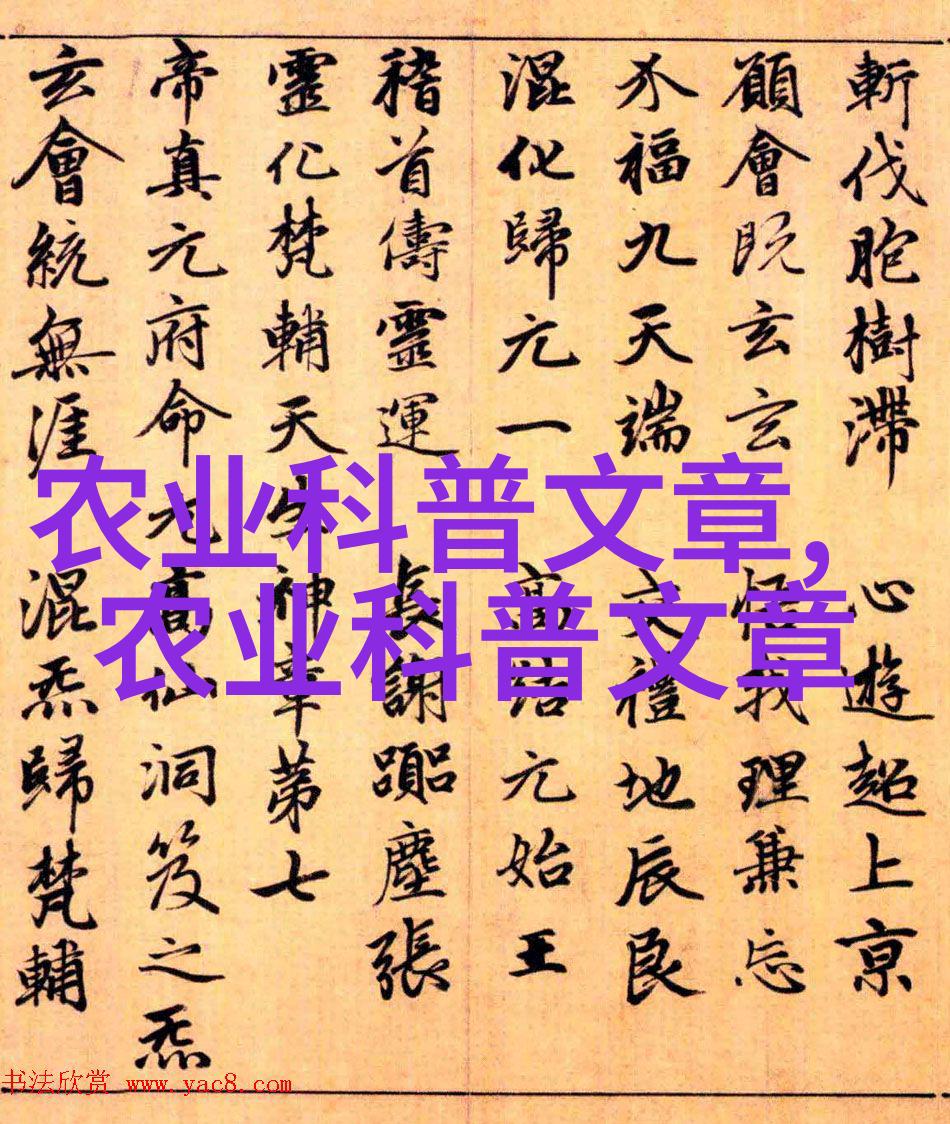 斬伐胞樹滯 心遊超上亰
願會既玄玄 悟我理兼忘
福九天端 禮地辰良
混化歸元一 高结元始王
稽首儔靈運 長謝塵張
靈化梵輔天生神章第七
帝真元府命元高仙洞笈之炁
玄會統無涯 混炁歸梵輔
农业科普文章,
农业科普文章
书法欣赏 www.yac8.com